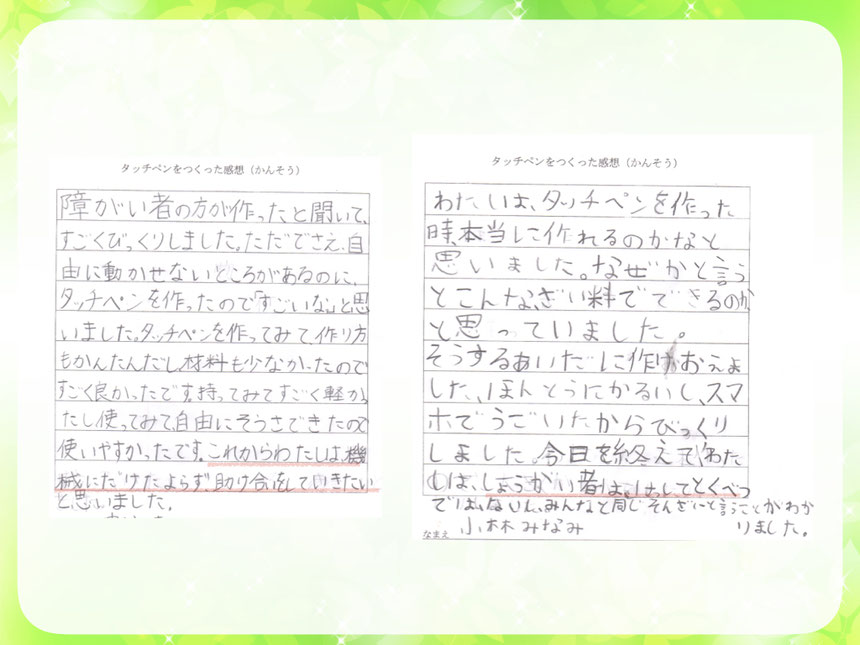 タッチペンをつくった感想（かんそう）
障がい者の方が作ったと聞いて、
すごくびっくりしました。ただでさえ、自
由に動かせないところがあるのに、
タッチペンを作ったので「すごいな」と思
いました。タッチペンを作ってみて、作り方
もかんたんだし、材料も少なかったので
すごく良かったです。持ってみてすごく軽か
たし使ってみて、自由にそうさできたので
使いやすかったです。これからわたしは、機
械にだけたよらず、助け合をしていきたい
と思いました。
タッチペンをつくった感想（かんそう）
わたしは、タッチペンを作った
時、本当に作れるのかなと
思いました。なぜかと言う
とこんな、ざい料でできるのか
と思っていました。
そうするあいだに作
した、ほんとうにかるいし、スマ
ホでうごいたからびっくり
しました。今日を終えて、わた
しは、しょうがい者は、けしてとくべつ
ではない、みんなと同じそんざいと言うことがわか
りました。
なまえ 小林みなみ